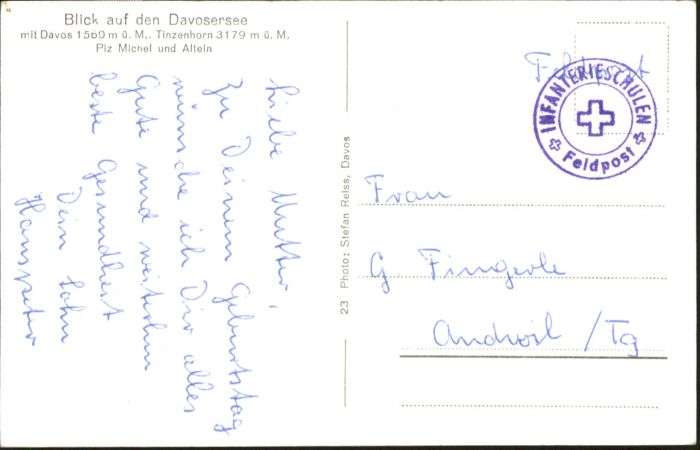 Blick auf den Davosersee
mit Davos 1560 m ü. M., Tinzenhorn 3179 m ü. M.
Piz Michel und Altein
Liebe Mutter,
Zu Deinem Geburtstag
wünsche ich Dir alles
Gute und weiterhin
beste Gesundheit
Dein Sohn
Hanspeter
23 Photo: Stefan Reiss, Davos
Feldpost
INFANTERIESCHULEN
Feldpost
Frau
G Fingerle
Andwil /Tg